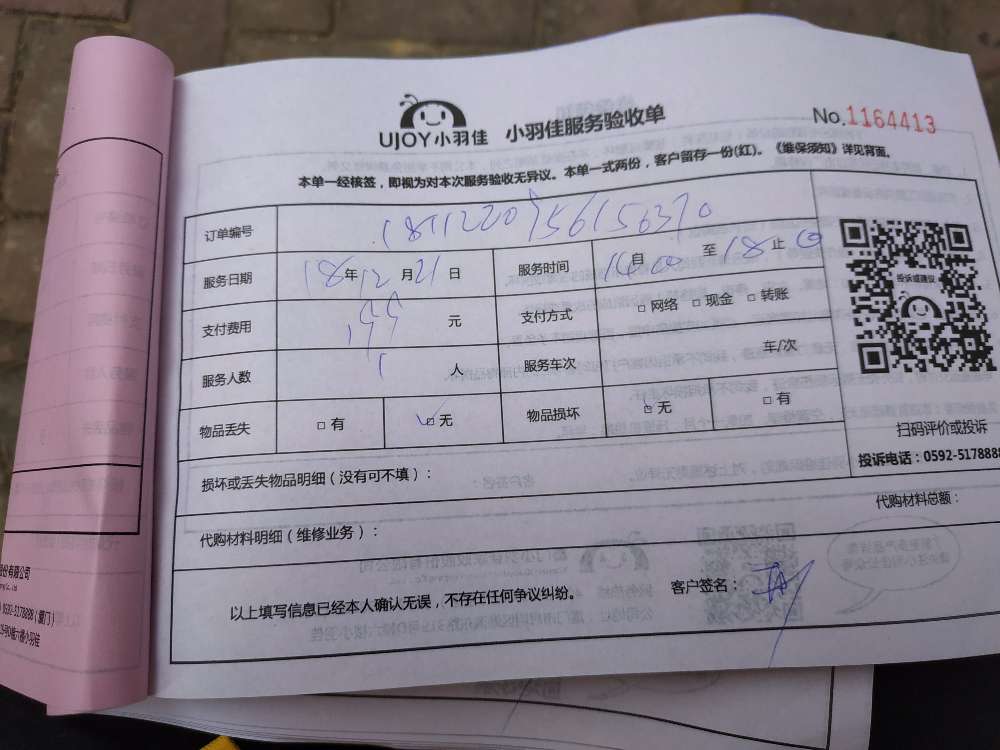 UJOY小羽佳 小羽佳服务验收单
No.1164413
本单一经核签，即视为对本次服务验收无异议。本单一式两份，客户留存一份(红)。《维保须知》详见背面。
订单编号
服务日期 18年12月21日 服务时间 自14:00至18止00
支付费用 155元 支付方式 □网络 □现金 □转账
服务人数 1人 服务车次 车/次
物品丢失 □有 ☑无 物品损坏 ☑无 □有
投诉或建议
扫码评价或投诉
投诉电话：0592-5178888
损坏或丢失物品明细（没有可不填）：
代购材料明细（维修业务）： 代购材料总额：
以上填写信息已经本人确认无误，不存在任何争议纠纷。 客户签名：
份有限公司
0592-5178888（厦门）